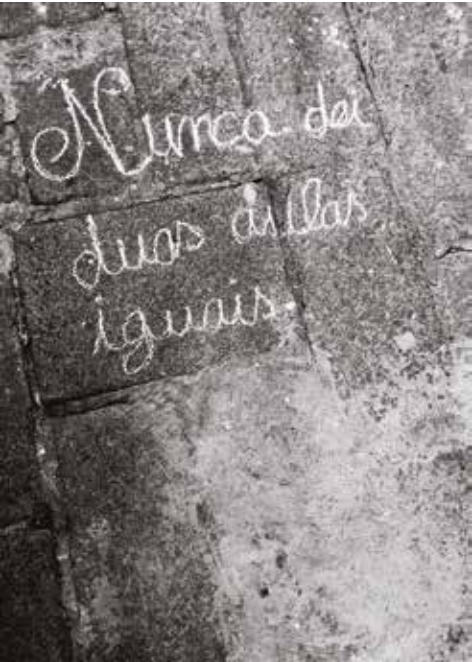 Nunca dei
duas aulas
iguais.